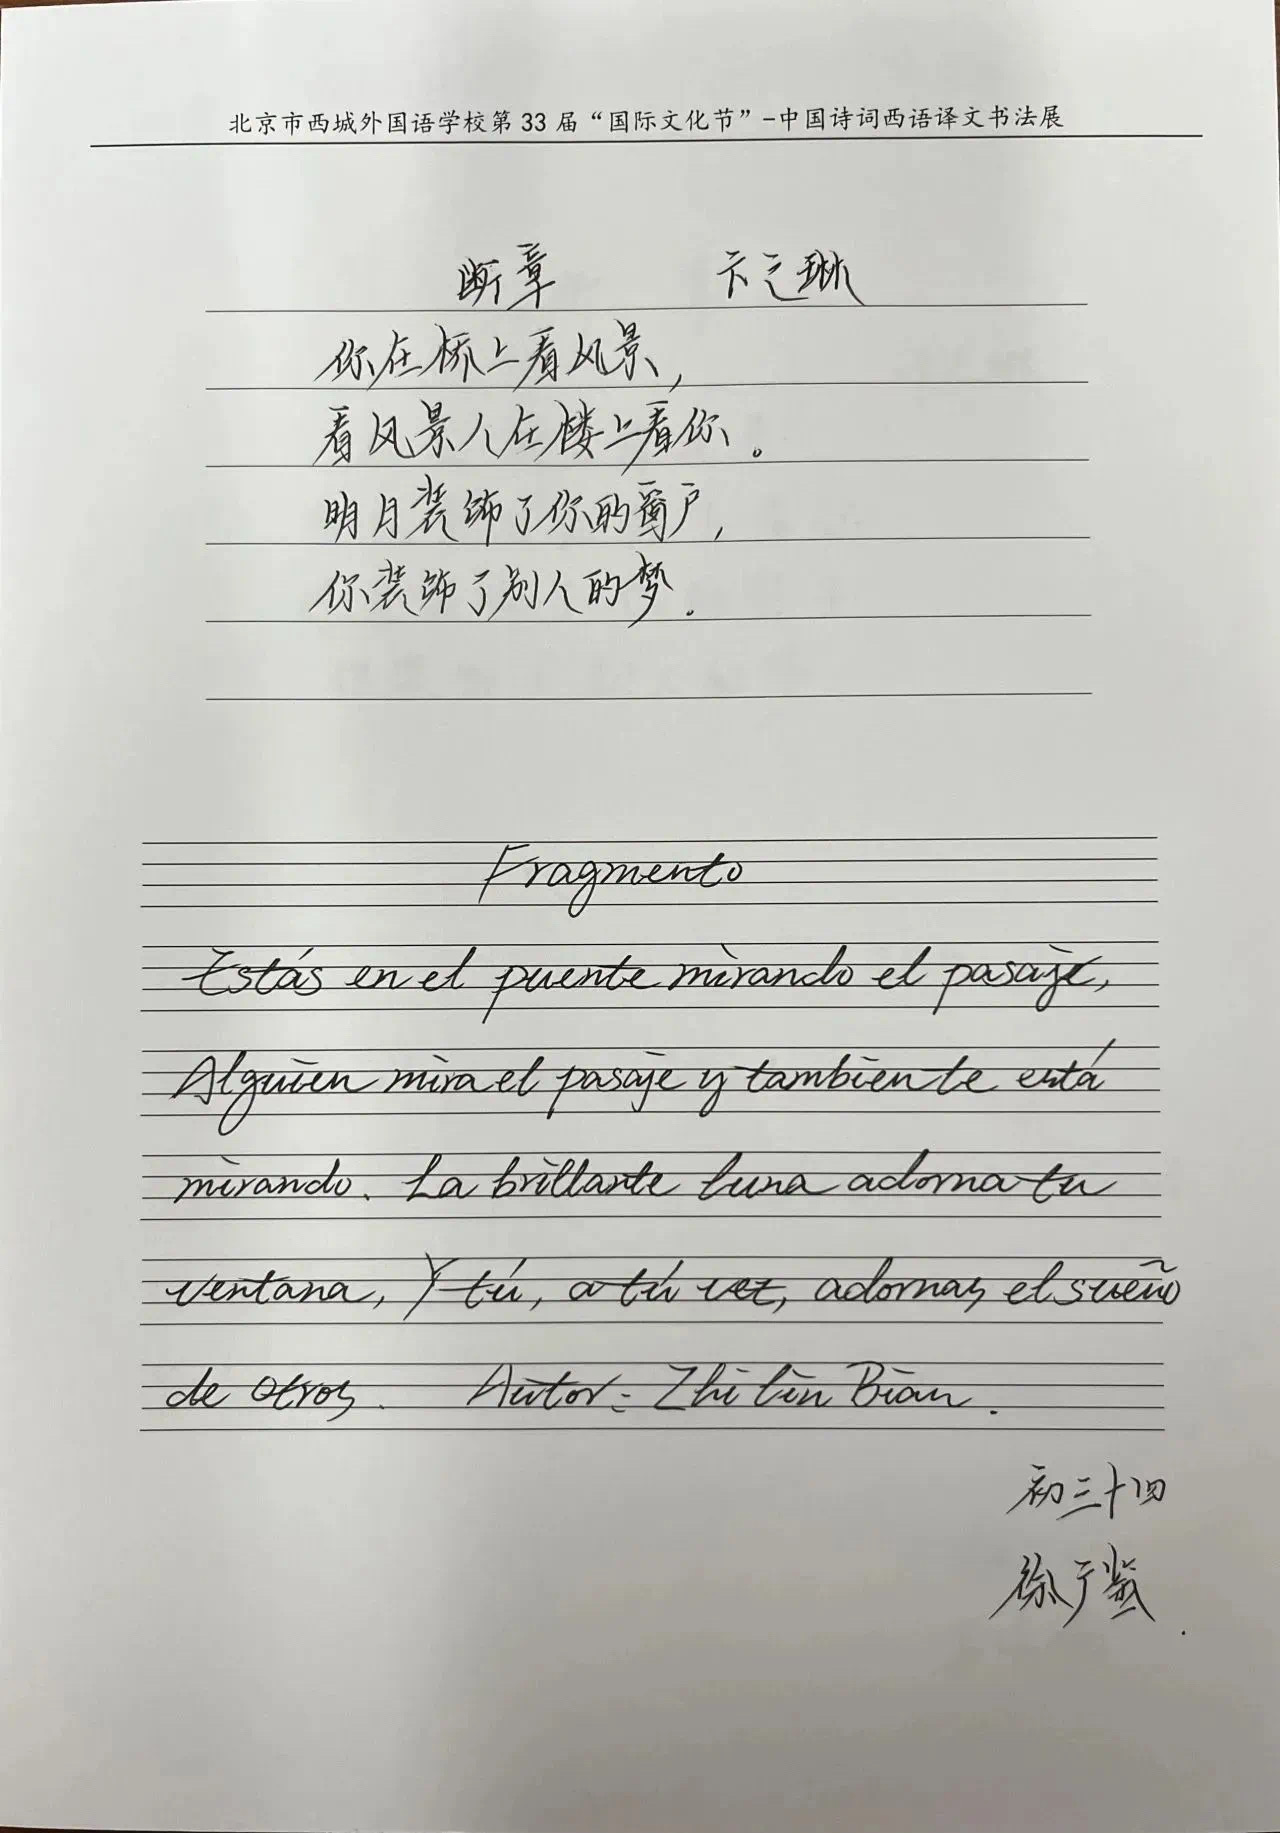 北京市西城外国语学校第 33 届“国际文化节”-中国诗词西语译文书法展
断章 卞之琳
你在桥上看风景,
看风景人在楼上看你。
明月装饰了你的窗户,
你装饰了别人的梦.
Fragmento
Estás en el puente mirando el pasaje,
Alguien mira el pasaje y tambien te está
mirando. La brillante luna adorna tu
ventana, Y tú, a tú vez, adornas el sueño
de otros. Autor: Zhilin Bian.
初三十四
徐于